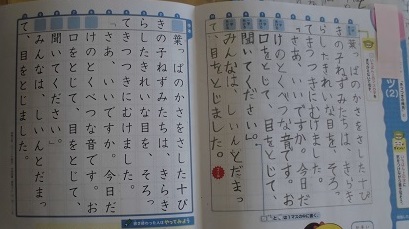 葉っぱのかさをさした十ぴ
きの子ねずみたちは、きらき
らしたきれいな目を、そろっ
てきつつきにむけました。
「さあ、いいですか。今日だ
けのとくべつな音です。お
口をとじて、目をとじて、
聞いてください。」
みんなは、しいんとだまっ
て、目をとじました。
葉っぱのかさをさした十ぴ
きの子ねずみたちは、きらき
らしたきれいな目を、そろっ
てきつつきにむけました。
「さあ、いいですか。今日だ
けのとくべつな音です。お
口をとじて、目をとじて、
聞いてください。」
みんなは、しいんとだまっ
て、目をとじました。